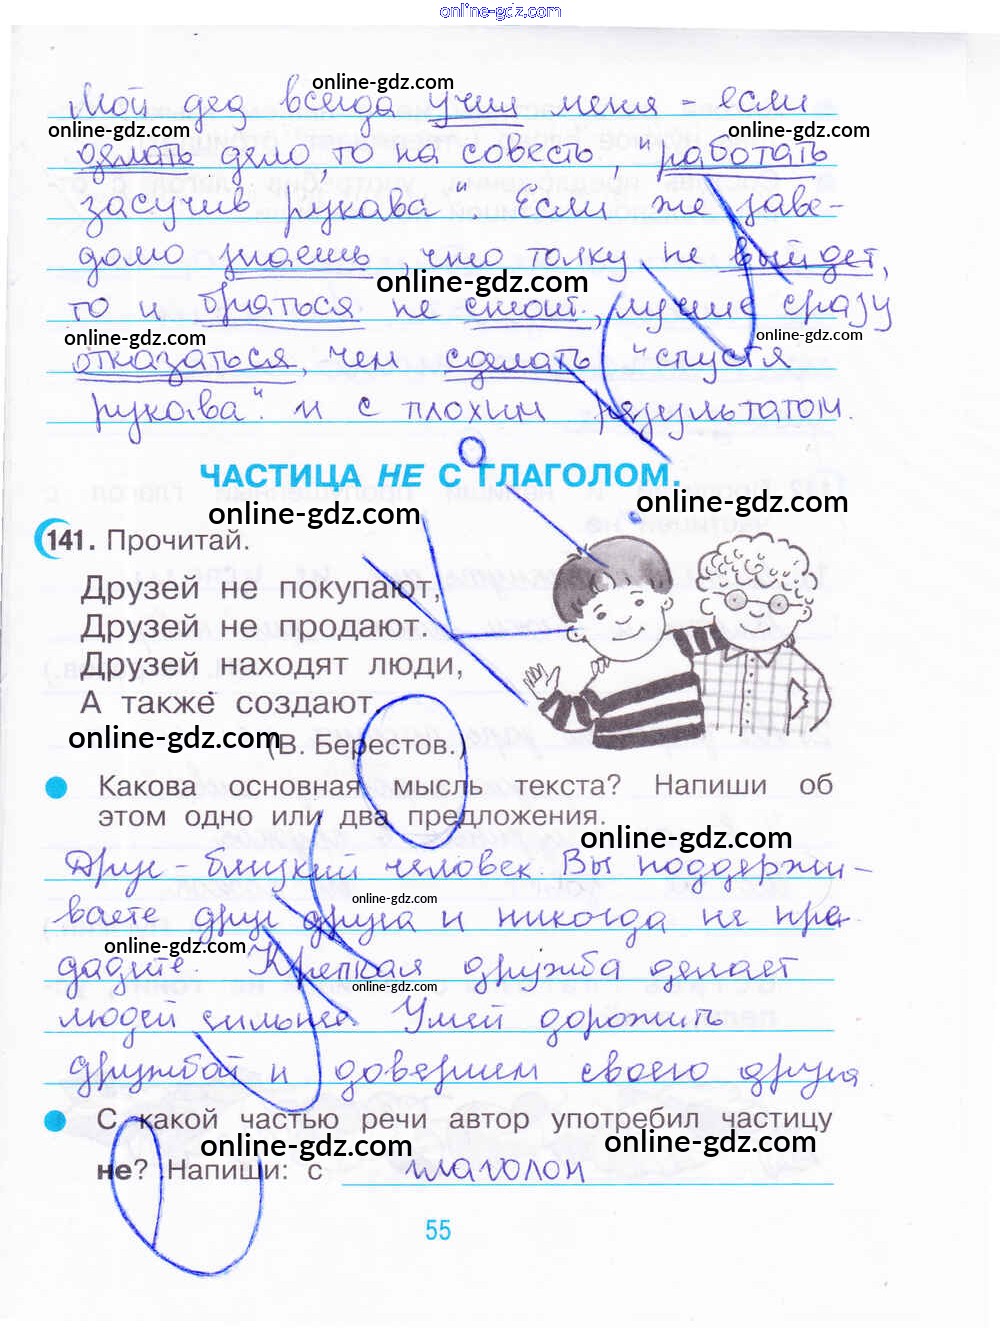 online-gdz.com
online-gdz.com
Мой дед всегда учил меня - если
online-gdz.com online-gdz.com
делать дело, то на совесть, "работать
засучив рукава". Если же заве-
домо знаешь, что толку не выйдет,
online-gdz.com
то и браться не стоит, лучше сразу
online-gdz.com online-gdz.com
отказаться, чем сделать "спустя
рукава" и с плохим результатом.
ЧАСТИЦА НЕ С ГЛАГОЛОМ.
online-gdz.com online-gdz.com
141. Прочитай.
Друзей не покупают,
Друзей не продают.
Друзей находят люди,
А также создают.
online-gdz.com
(В. Берестов.)
Какова основная мысль текста? Напиши об
этом одно или два предложения.
online-gdz.com
Друг - близкий человек. Вы поддержи-
online-gdz.com
ваете друг друга и никогда не пре-
online-gdz.com
дадите. Крепкая дружба делает
online-gdz.com
людей сильнее. Умей дорожить
дружбой и доверием своего друга.
С какой частью речи автор употребил частицу
online-gdz.com online-gdz.com
не? Напиши: с глаголом
55